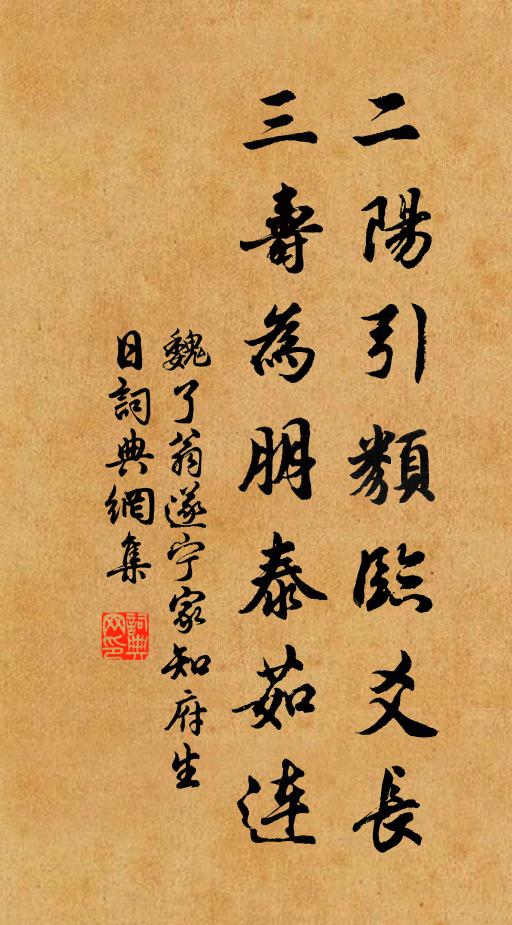 二陽引類臨爻長
三壽為朋泰茹連
魏了翁遂宁家知府生
日詞典網集
詞典网印